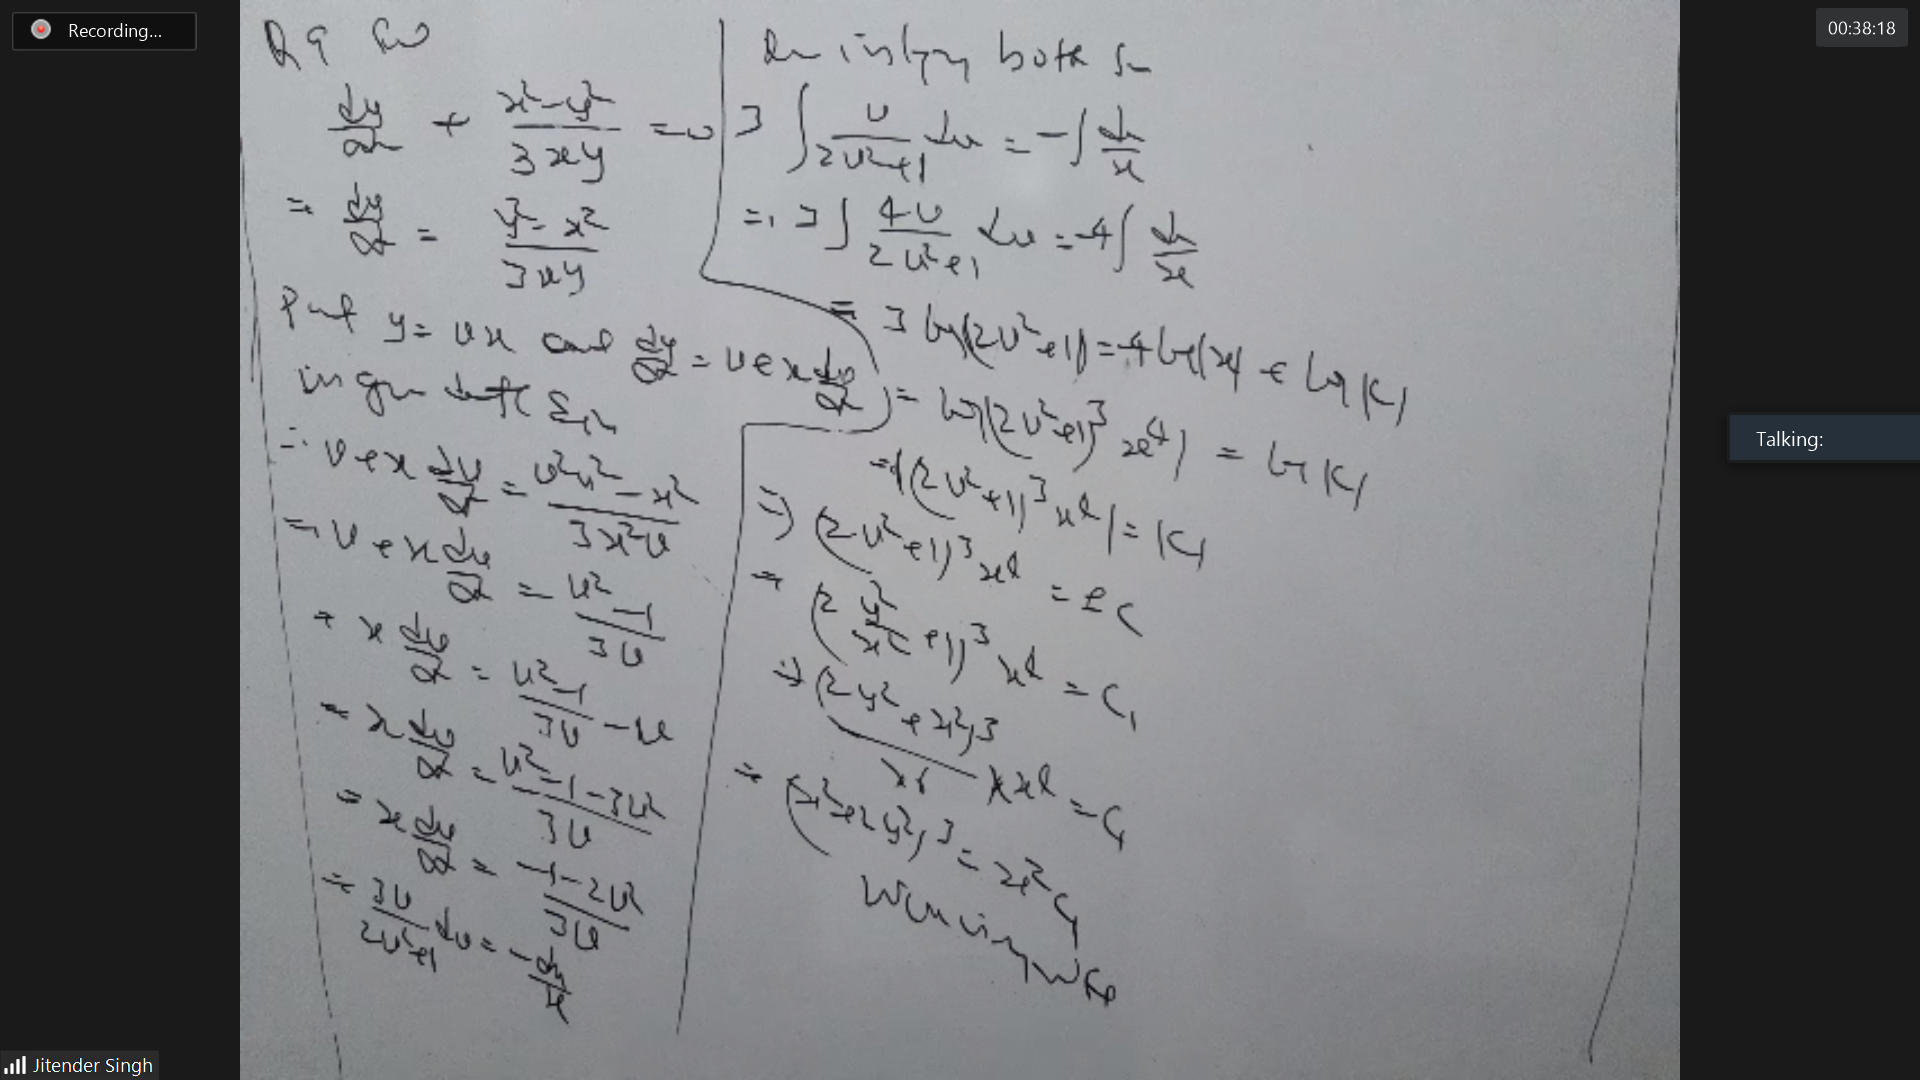 Recording...
00:38:18
dy/dx + (x²-y²)/(3xy) = 0
⇒ dy/dx = (y²-x²)/(3xy)
Put y = vx and dy/dx = v + x dv/dx
in
∴ v + x dv/dx = (v²x²-x²)/(3x²v)
⇒ v + x dv/dx = (v²-1)/(3v)
⇒ x dv/dx = (v²-1)/(3v) - v
⇒ x dv/dx = (v²-1-3v²)/(3v)
⇒ x dv/dx = (-1-2v²)/(3v)
⇒ 3v/(2v²+1) dv = -dx/x
both
3 ∫ v/(2v²+1) dv = -∫ dx/x
⇒ 3 ∫ 4v/(2v²+1) dv = -4 ∫ dx/x
= 3 log|(2v²+1)| = -4 log|x| + log|C₁|
= log|(2v²+1)³ x⁴| = log|C₁|
⇒ |(2v²+1)³ x⁴| = |C₁|
⇒ (2v²+1)³ x⁴ = ± C₁
⇒ (2 y²/x² + 1)³ x⁴ = C₁
⇒ (2y²+x²)³/x⁶ × x⁴ = C₁
⇒ (x²+2y²)³ = x² C₁
Talking:
Jitender Singh